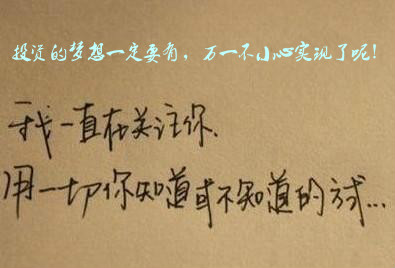 投资的梦想一定要有，万一不小心实现了呢！
我一直在关注你.
用一切你知道或不知道的方式...